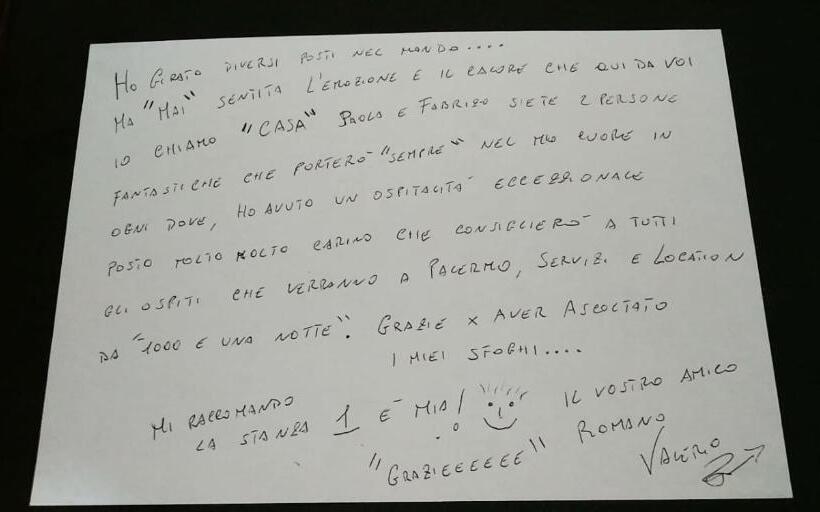 HO GIRATO DIVERSI POSTI NEL MONDO....
MA "MAI" SENTITA L'EMOZIONE E IL CALORE CHE QUI DA VOI
IO CHIAMO "CASA" PAOLA E FABRIZO SIETE 2 PERSONE
FANTASTICHE CHE PORTERÒ "SEMPRE" NEL MIO CUORE IN
OGNI DOVE, HO AVUTO UN OSPITALITÀ ECCEZZIONALE
POSTO MOLTO MOLTO CARINO CHE CONSIGLIERÒ A TUTTI
GLI OSPITI CHE VERRANNO A PALERMO, SERVIZI E LOCATION
DA "1000 E UNA NOTTE". GRAZIE X AVER ASCOLTATO
I MIEI SFOGHI....
MI RACCOMANDO
LA STANZA 1 È MIA!
IL VOSTRO AMICO
"GRAZIEEEEEE" ROMANO
VALERIO